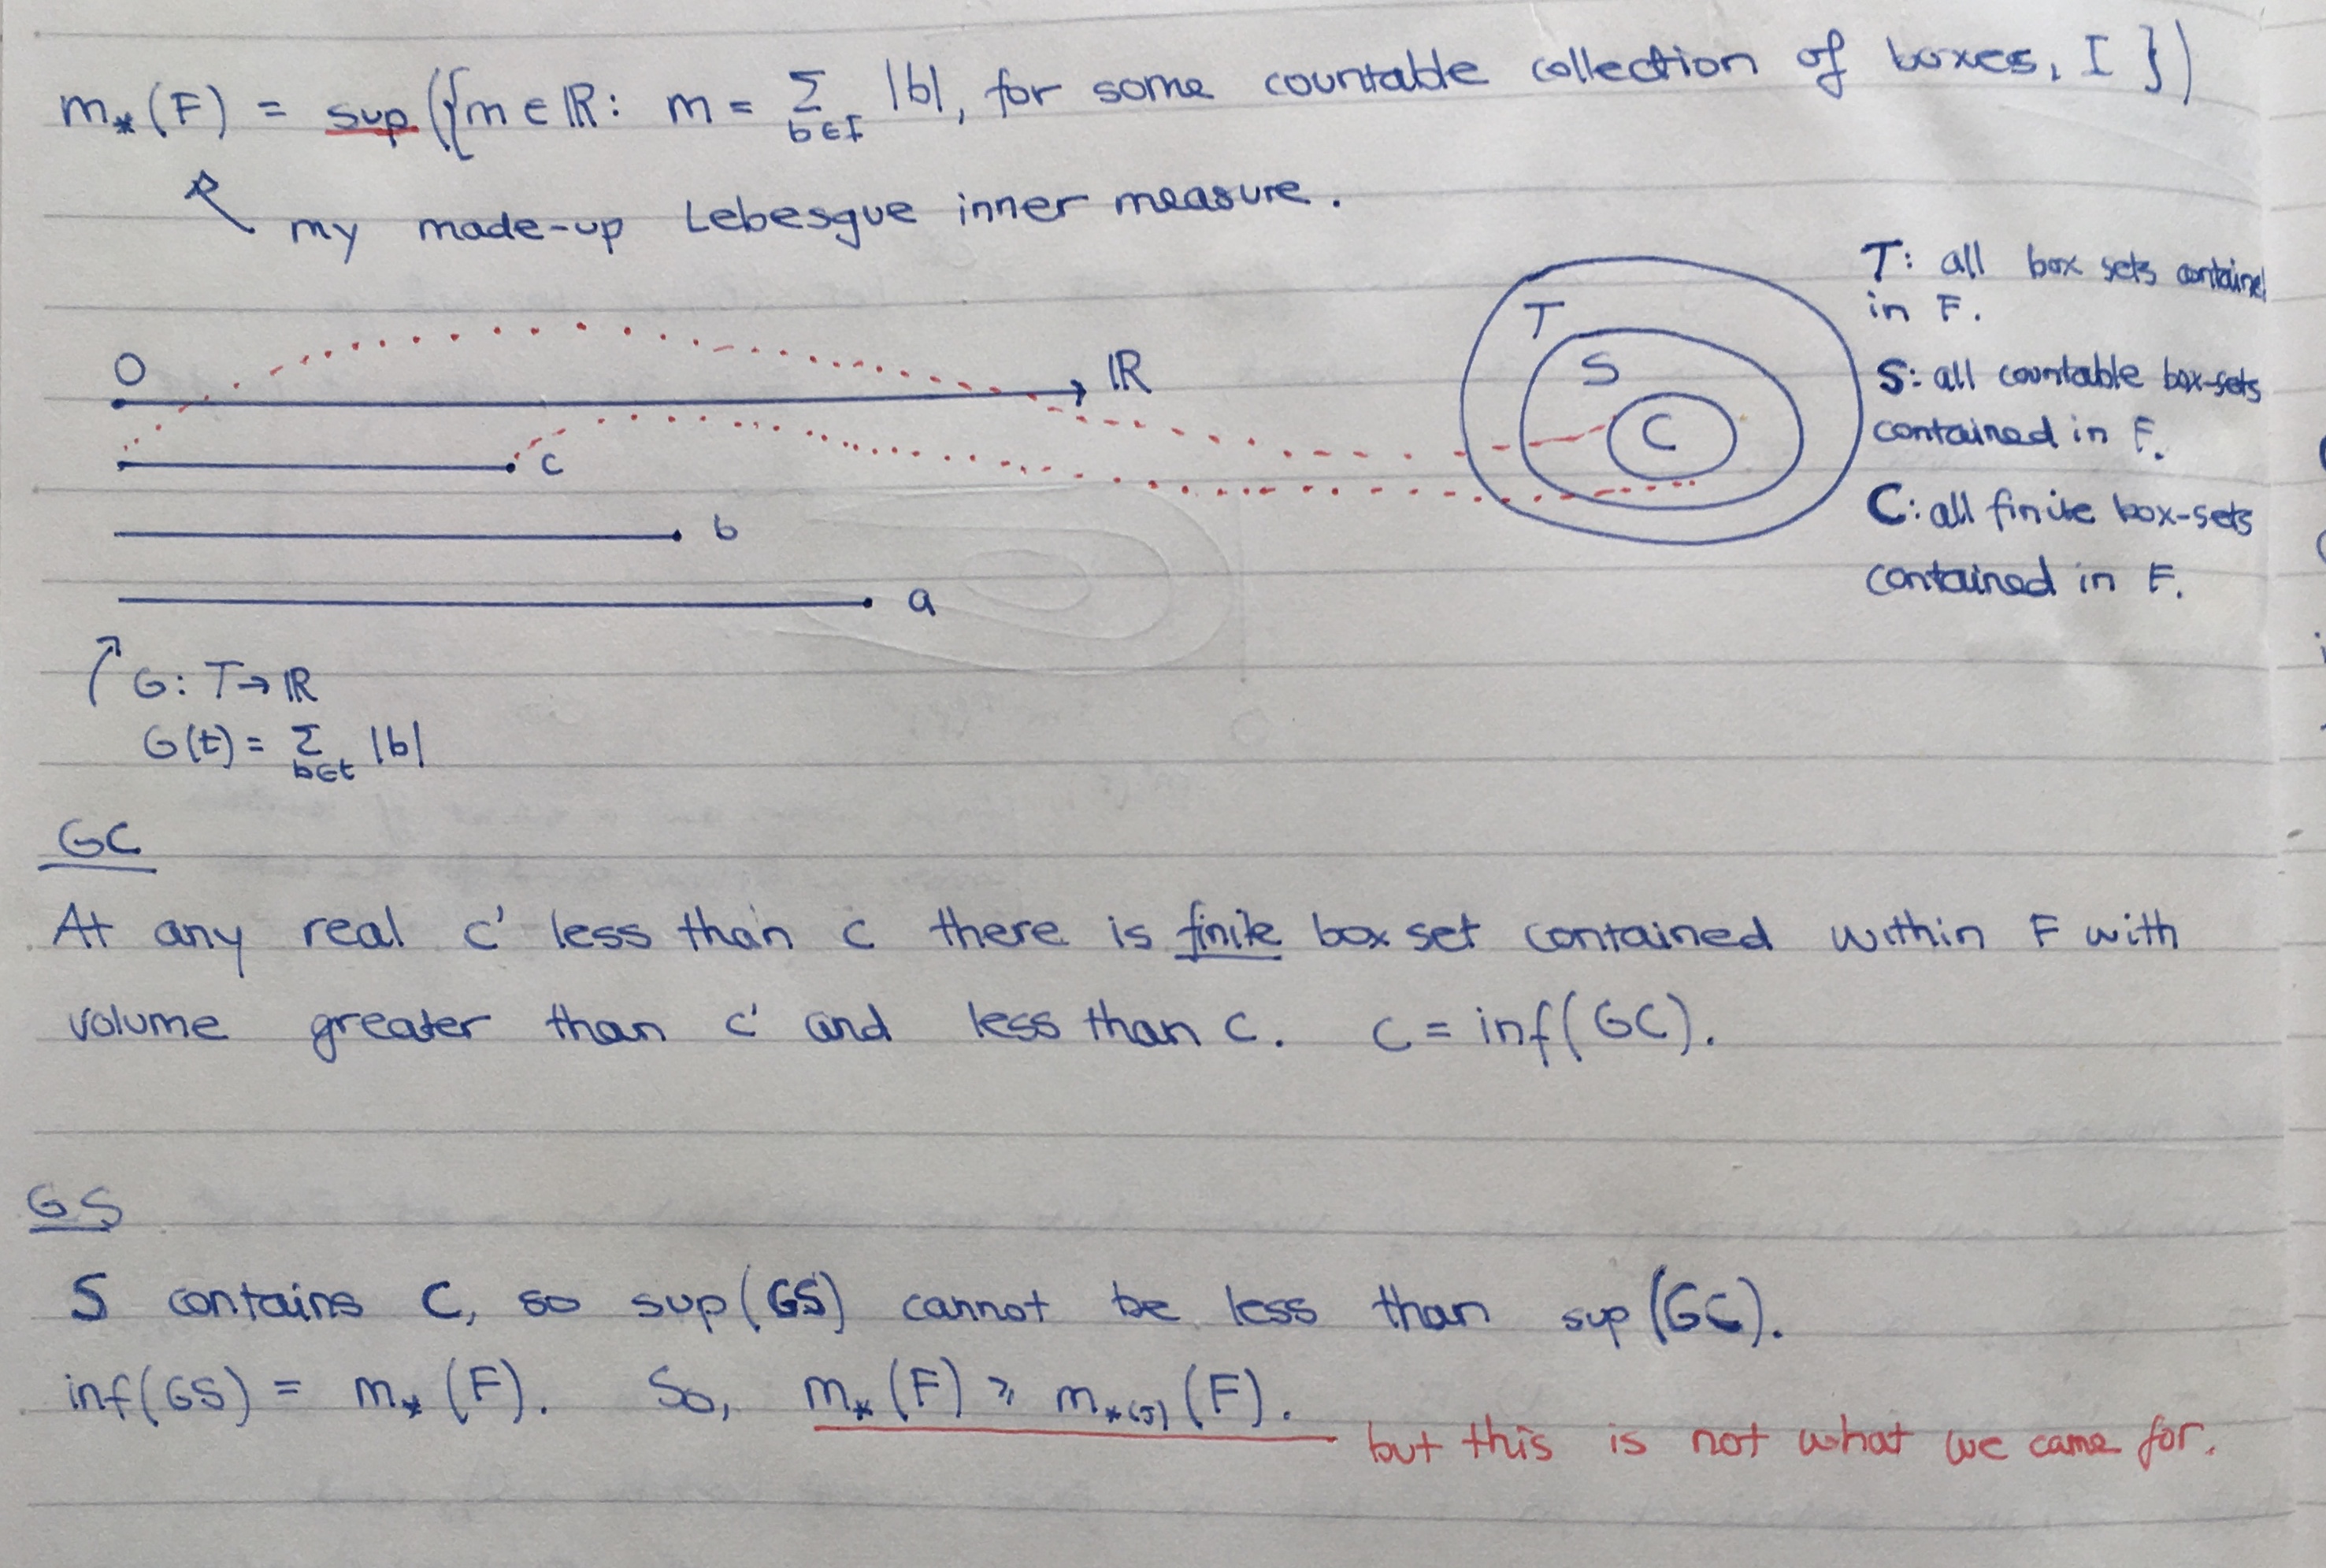 m⁎(F) = sup({m ∈ ℝ: m = Σ_{b∈I} |b|, for some countable collection of boxes, I })
my made-up Lebesgue inner measure.
T: all box sets contained
in F.
S: all countable box-sets
contained in F.
C: all finite box-sets
contained in F.
T
S
C
0
ℝ
c
b
a
G: T → ℝ
G(t) = Σ_{b∈t} |b|
GC
At any real c' less than c there is finite box set contained within F with
volume greater than c' and less than c. c = inf(GC).
GS
S contains C, so sup(GS) cannot be less than sup(GC).
inf(GS) = m⁎(F). So, m⁎(F) ≥ m⁎(J)(F).
but this is not what we came for.